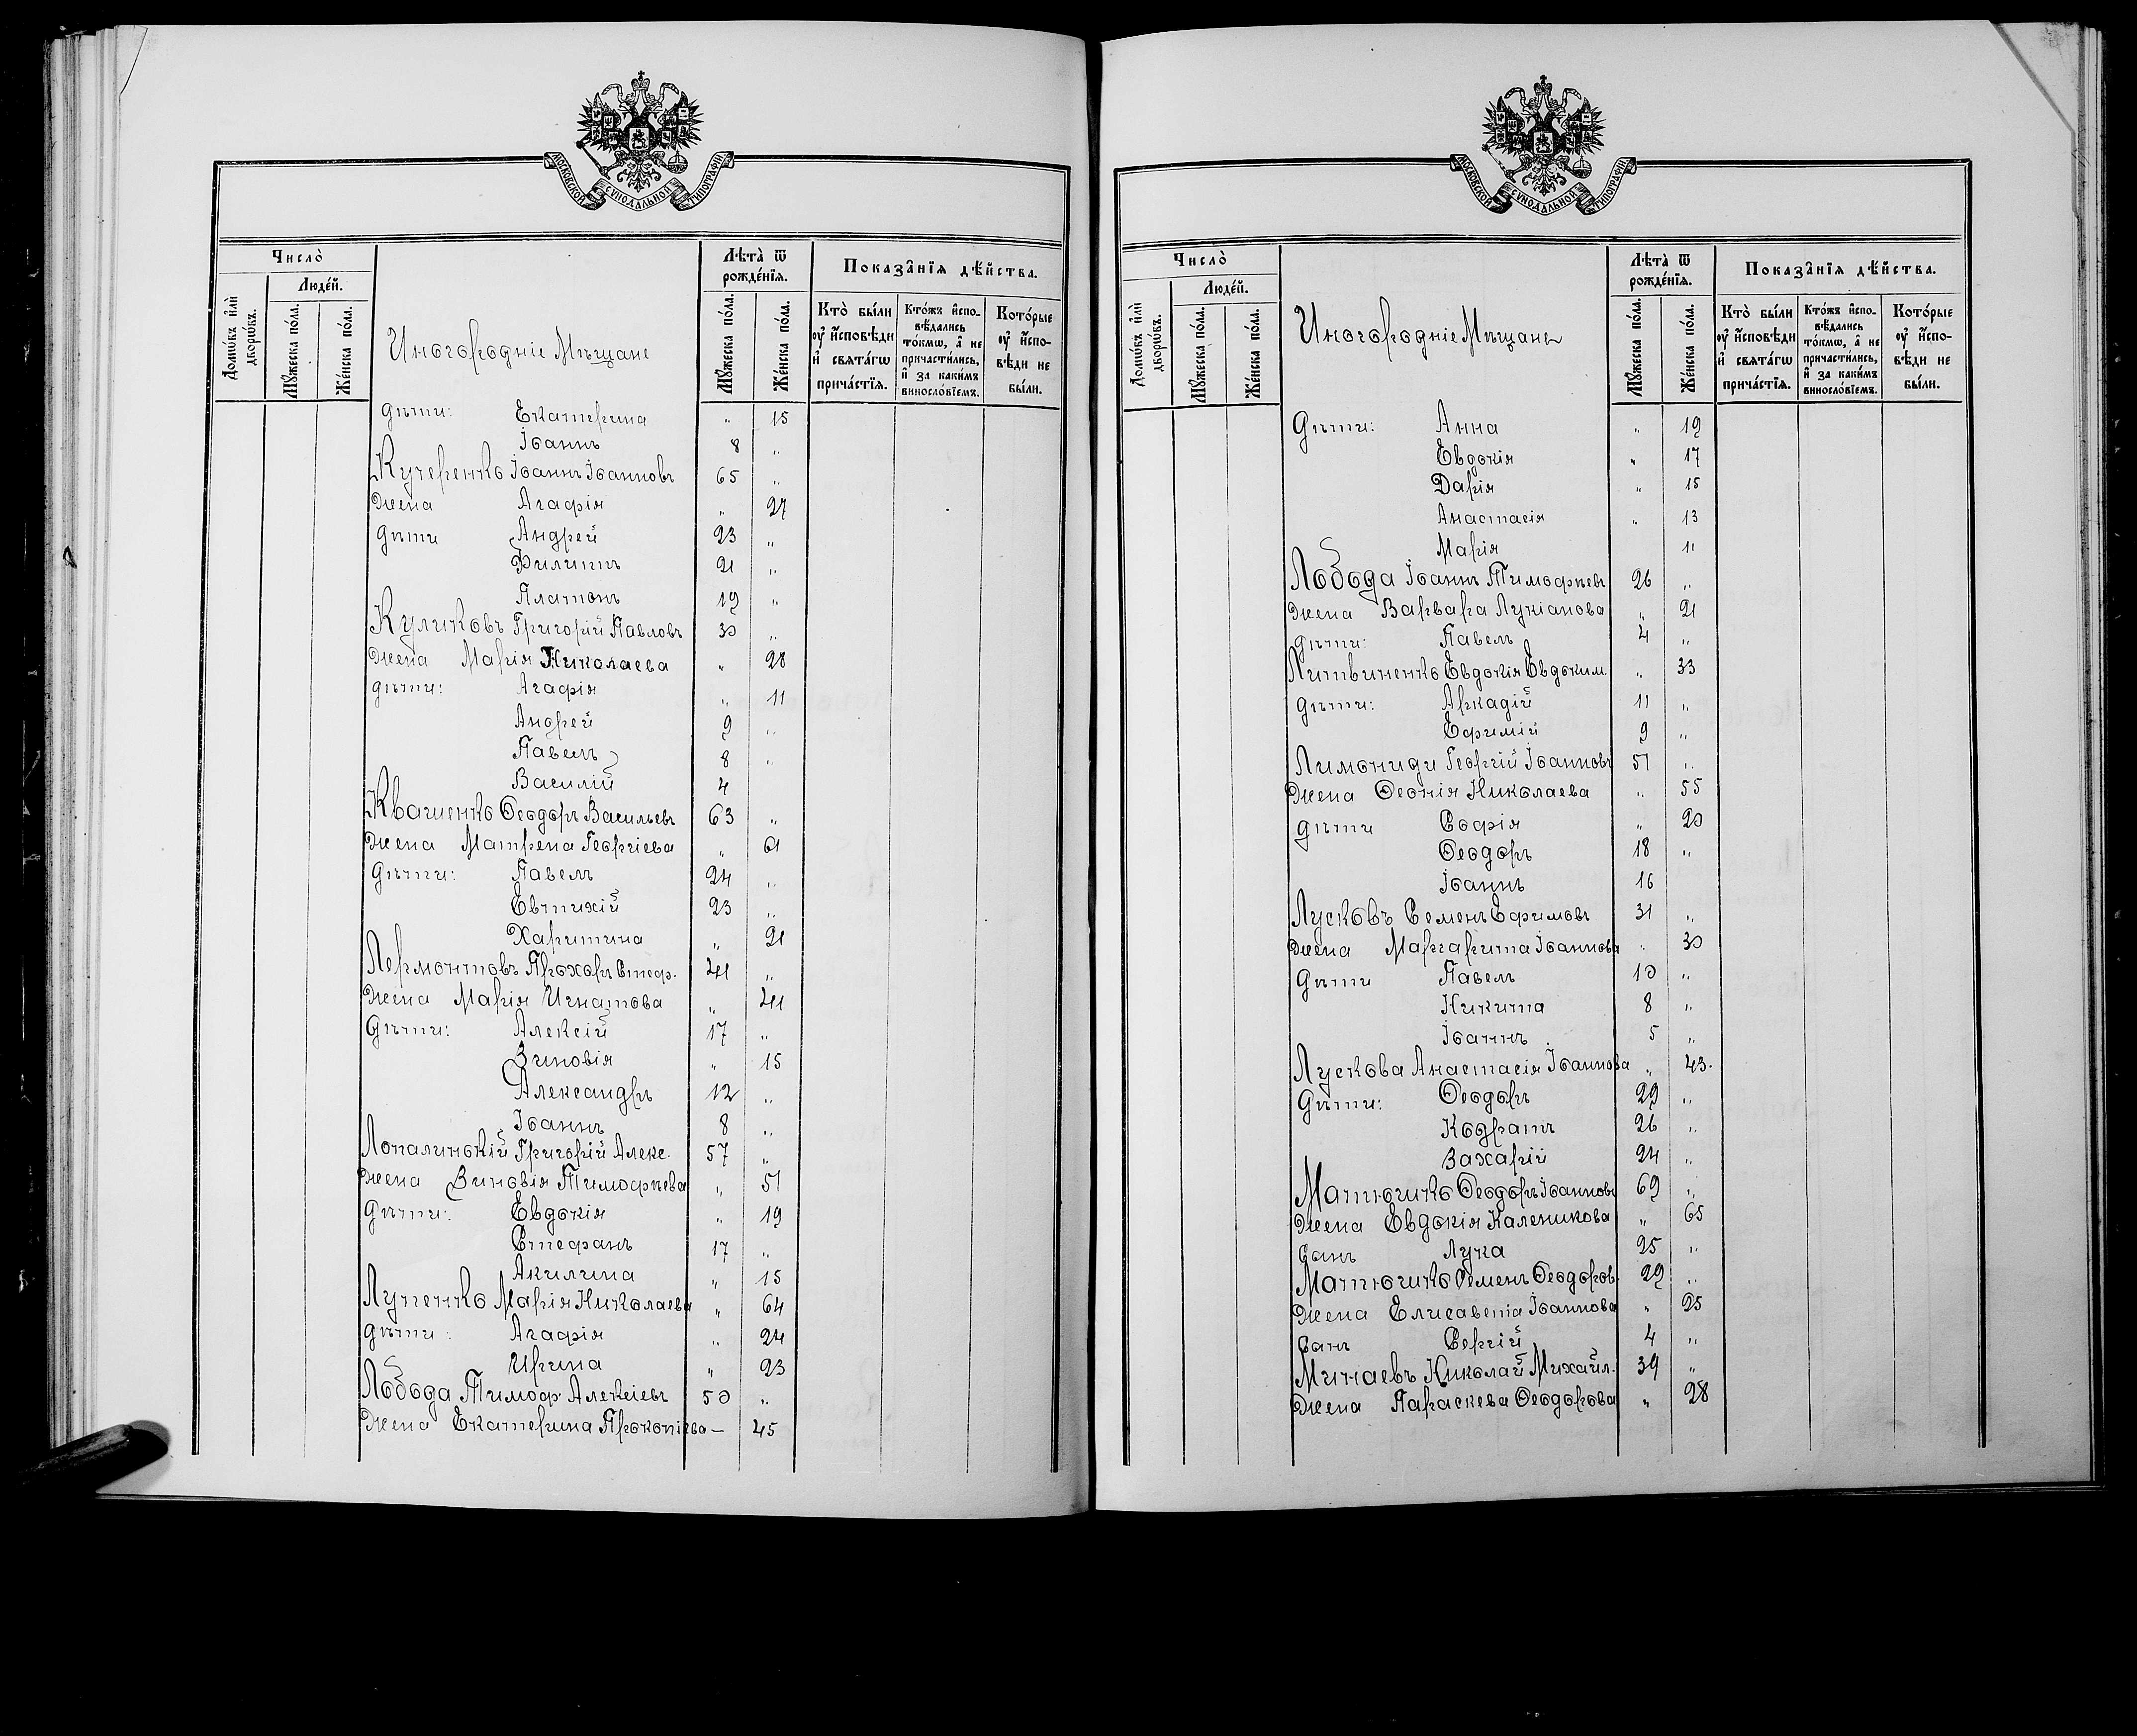 МОСКОВСКОЙ СѴНОДАЛЬНОЙ ТИПОГРАФІИ
Число̀
Людéй.
Домѡ́въ и҆лѝ дворѡ́въ.
Мꙋ́жеска по́ла.
Же́нска по́ла.
Иногородніе Мѣщане
Лѣта̀ ѿ рожде́нїѧ.
Мꙋ́жеска по́ла.
Же́нска по́ла.
Показа̑нїѧ дѣ́йства.
Кто̀ бы́ли ᲂу҆ и҆сповѣ́ди и҆ свѧта́гѡ прича́стїѧ.
Кто́жъ и҆сповѣ́дались то́кмѡ, а҆ не причасти́лись, и҆ за каки́мъ винословїемъ.
Кото́рые ᲂу҆ и҆сповѣ́ди не бы́ли.
Дѣти: Екатерина " 15
Іоаннъ 8 "
Кучеренко Іоаннъ Іоанновъ 65 "
Жена Агафія " 27
Дѣти Андрей 23 "
Филиппъ 21 "
Платонъ 19 "
Куликовъ Григорій Павловъ 30 "
Жена Марія Николаева " 28
Дѣти: Агафія " 11
Андрей 9 "
Павелъ 8 "
Василій 4
Квашенко Ѳеодоръ Васильевъ 63 "
Жена Матрена Георгіева " 61
Дѣти: Павелъ 24 "
Евтихій 23 "
Харитина " 21
Лермонтовъ Прохоръ Стеф. 41 "
Жена Марія Игнатова " 41
Дѣти: Алексій 17 "
Зиновія " 15
Александръ 12 "
Іоаннъ 8 "
Лопалинскій Григорій Алекс. 57 "
Жена Зиновія Тимофѣева " 51
Дѣти: Евдокія " 19
Стефанъ 17 "
Акилина " 15
Луценко Марія Николаева " 64
Дѣти: Агафія " 24
Ирина " 23
Лобода Тимоф. Алексіевъ 50 "
Жена Екатерина Прокопіева — 45
МОСКОВСКОЙ СѴНОДАЛЬНОЙ ТИПОГРАФІИ
Число̀
Людéй.
Домѡ́въ и҆лѝ дворѡ́въ.
Мꙋ́жеска по́ла.
Же́нска по́ла.
Иногородніе Мѣщане
Лѣта̀ ѿ рожде́нїѧ.
Мꙋ́жеска по́ла.
Же́нска по́ла.
Показа̑нїѧ дѣ́йства.
Кто̀ бы́ли ᲂу҆ и҆сповѣ́ди и҆ свѧта́гѡ прича́стїѧ.
Кто́жъ и҆сповѣ́дались то́кмѡ, а҆ не причасти́лись, и҆ за каки́мъ винословїемъ.
Кото́рые ᲂу҆ и҆сповѣ́ди не бы́ли.
Дѣти: Анна " 19
Евдокія " 17
Дарія " 15
Анастасія " 13
Марія 11
Лобода Іоаннъ Тимофѣев. 26 "
Жена Варвара Лукіанова " 21
Дѣти: Павелъ 4 "
Литвиненко Евдокія Евдоким. " 33
Дѣти: Аркадій 11 "
Ефимій 9 "
Лимониди Георгій Іоанновъ 51 "
Жена Ѳеонія Николаева " 55
Дѣти Софія " 20
Ѳеодоръ 18 "
Іоаннъ 16
Лусковъ Семенъ Ефимовъ 31 "
Жена Маргарита Іоаннова " 30
Дѣти Павелъ 10 "
Никита 8 "
Іоаннъ 5 "
Лускова Анастасія Іоаннова " 43.
Дѣти: Ѳеодоръ 29 "
Кодратъ 26 "
Захарій 24 "
Матючико Ѳеодоръ Іоанновъ 69 "
Жена Евдокія Каленикова " 65
Сынъ Лука 25 "
Матючико Семенъ Ѳеодоров. 29 "
Жена Елисавета Іоаннова " 25
Сынъ Сергій 4 "
Минаевъ Николай Михайл. 39 "
Жена Параскева Ѳеодорова " 28